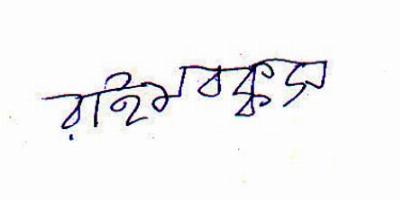 রহিম বক্কস